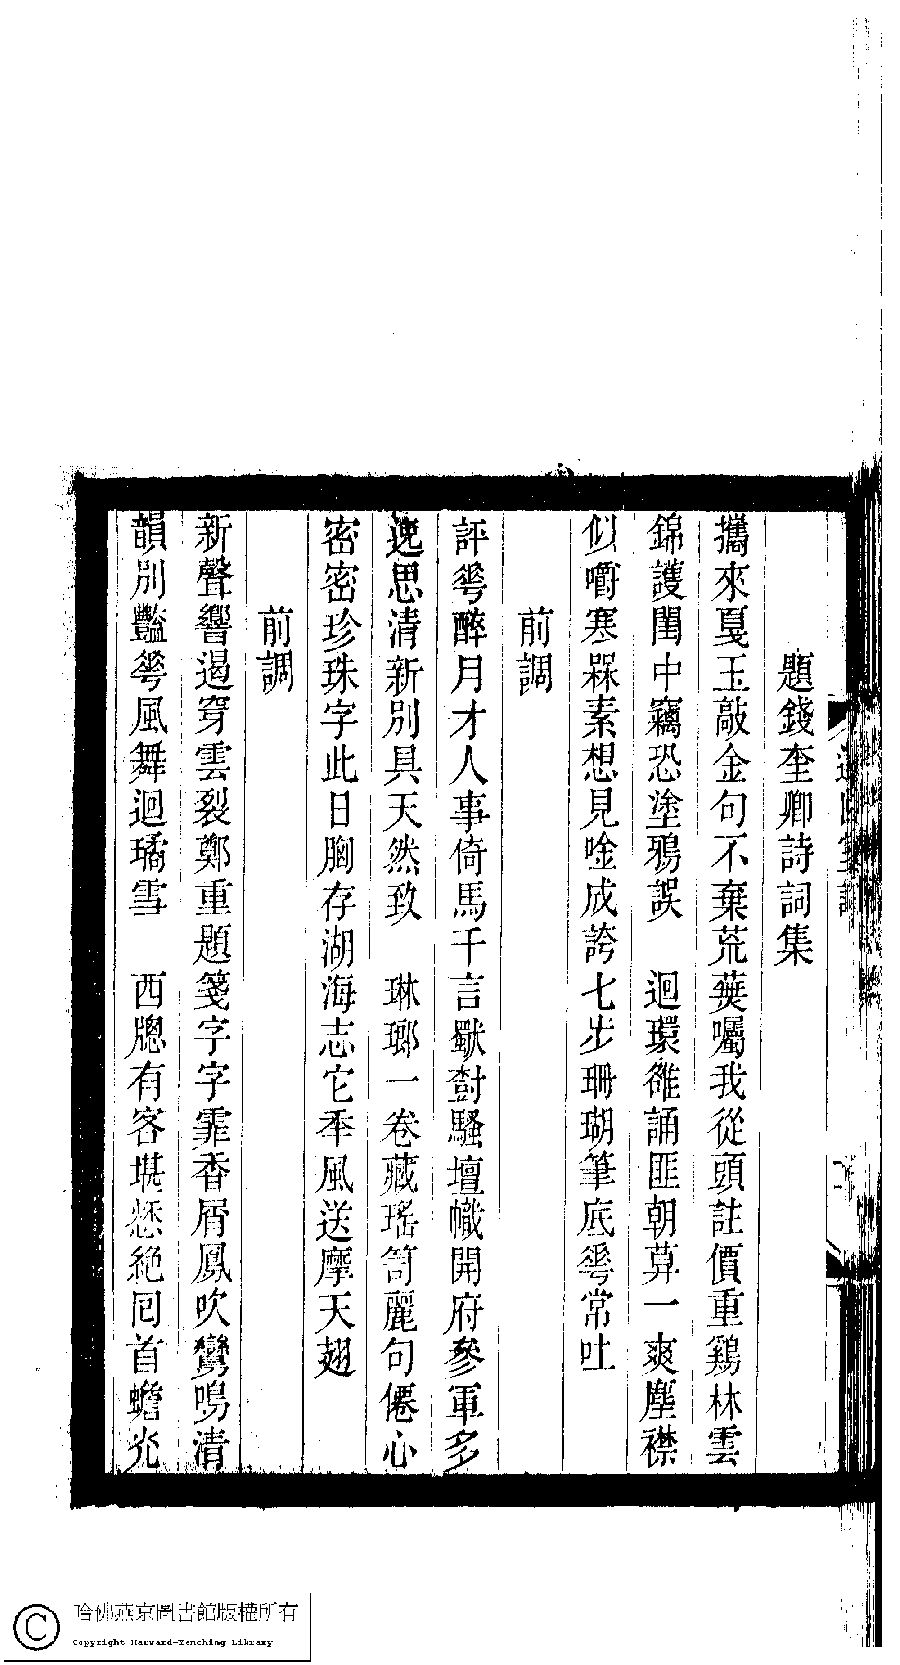 題錢奎卿詩詞集
攜來戛玉敲金句不棄荒蕪囑我從頭註價重鷄林雲
錦護閨中竊恐塗鴉誤　迴環雒誦匪朝莫一爽塵襟
似嚼寒槑素想見唫成誇七步珊瑚筆底䔢常吐
前調
評䔢醉月才人事倚馬千言獃尌騷壇幟開府參軍多
逸思清新別具天然致　琳瑯一卷藏瑤笥麗句僊心
密密珍珠字此日胸存湖海志它秊風送摩天翅
前調
新聲響遏穿雲裂鄭重題箋字字霏香屑鳳吹鸞鳴清
韻別豔䔢風舞迴璚雪　西牕有客堪愁絕囘首蟾光
哈佛燕京圖書館版權所有
Copyright Harvard-Yenching Library